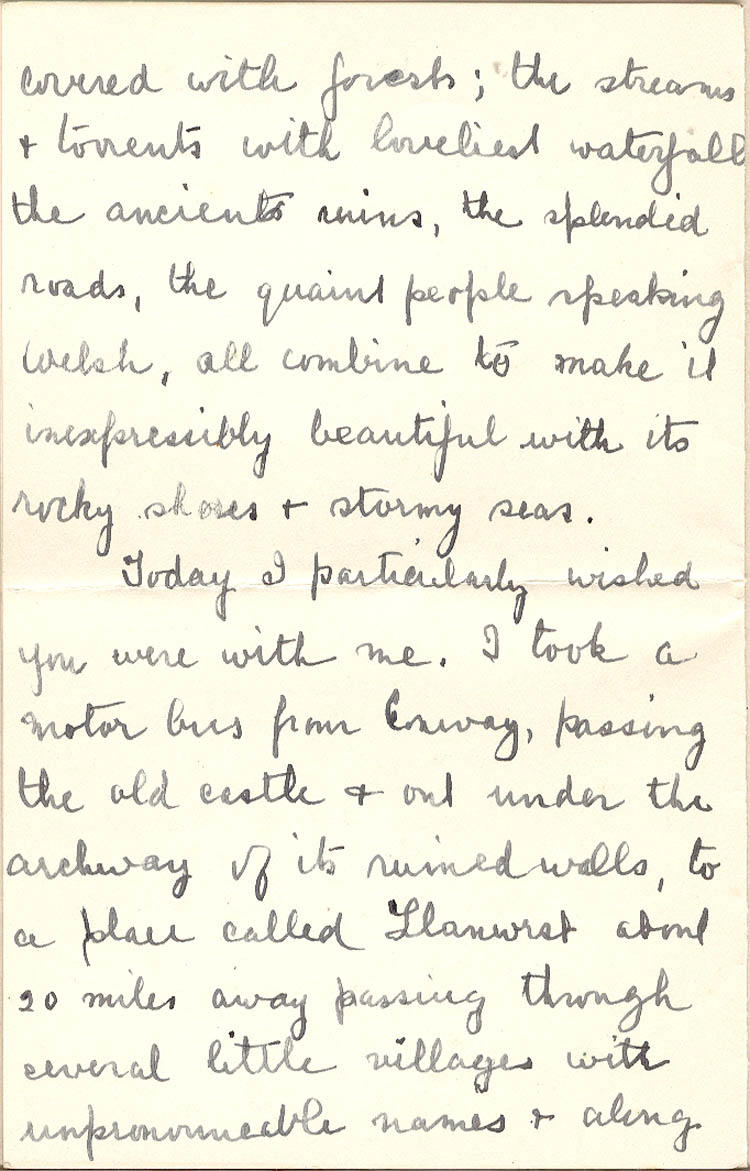 covered with forests; the streams
& torrents with loveliest waterfall
the ancients ruins, the splendid
roads, the quaint people speaking
Welsh, all combine to make it
inexpressibly beautiful with its
rocky shores & stormy seas.
Today I particularly wished
you were with me. I took a
motor bus from Conway, passing
the old castle & out under the
archway of its ruined walls, to
a place called Llanwrst about
20 miles away passing through
several little villages with
unpronounceable names & along